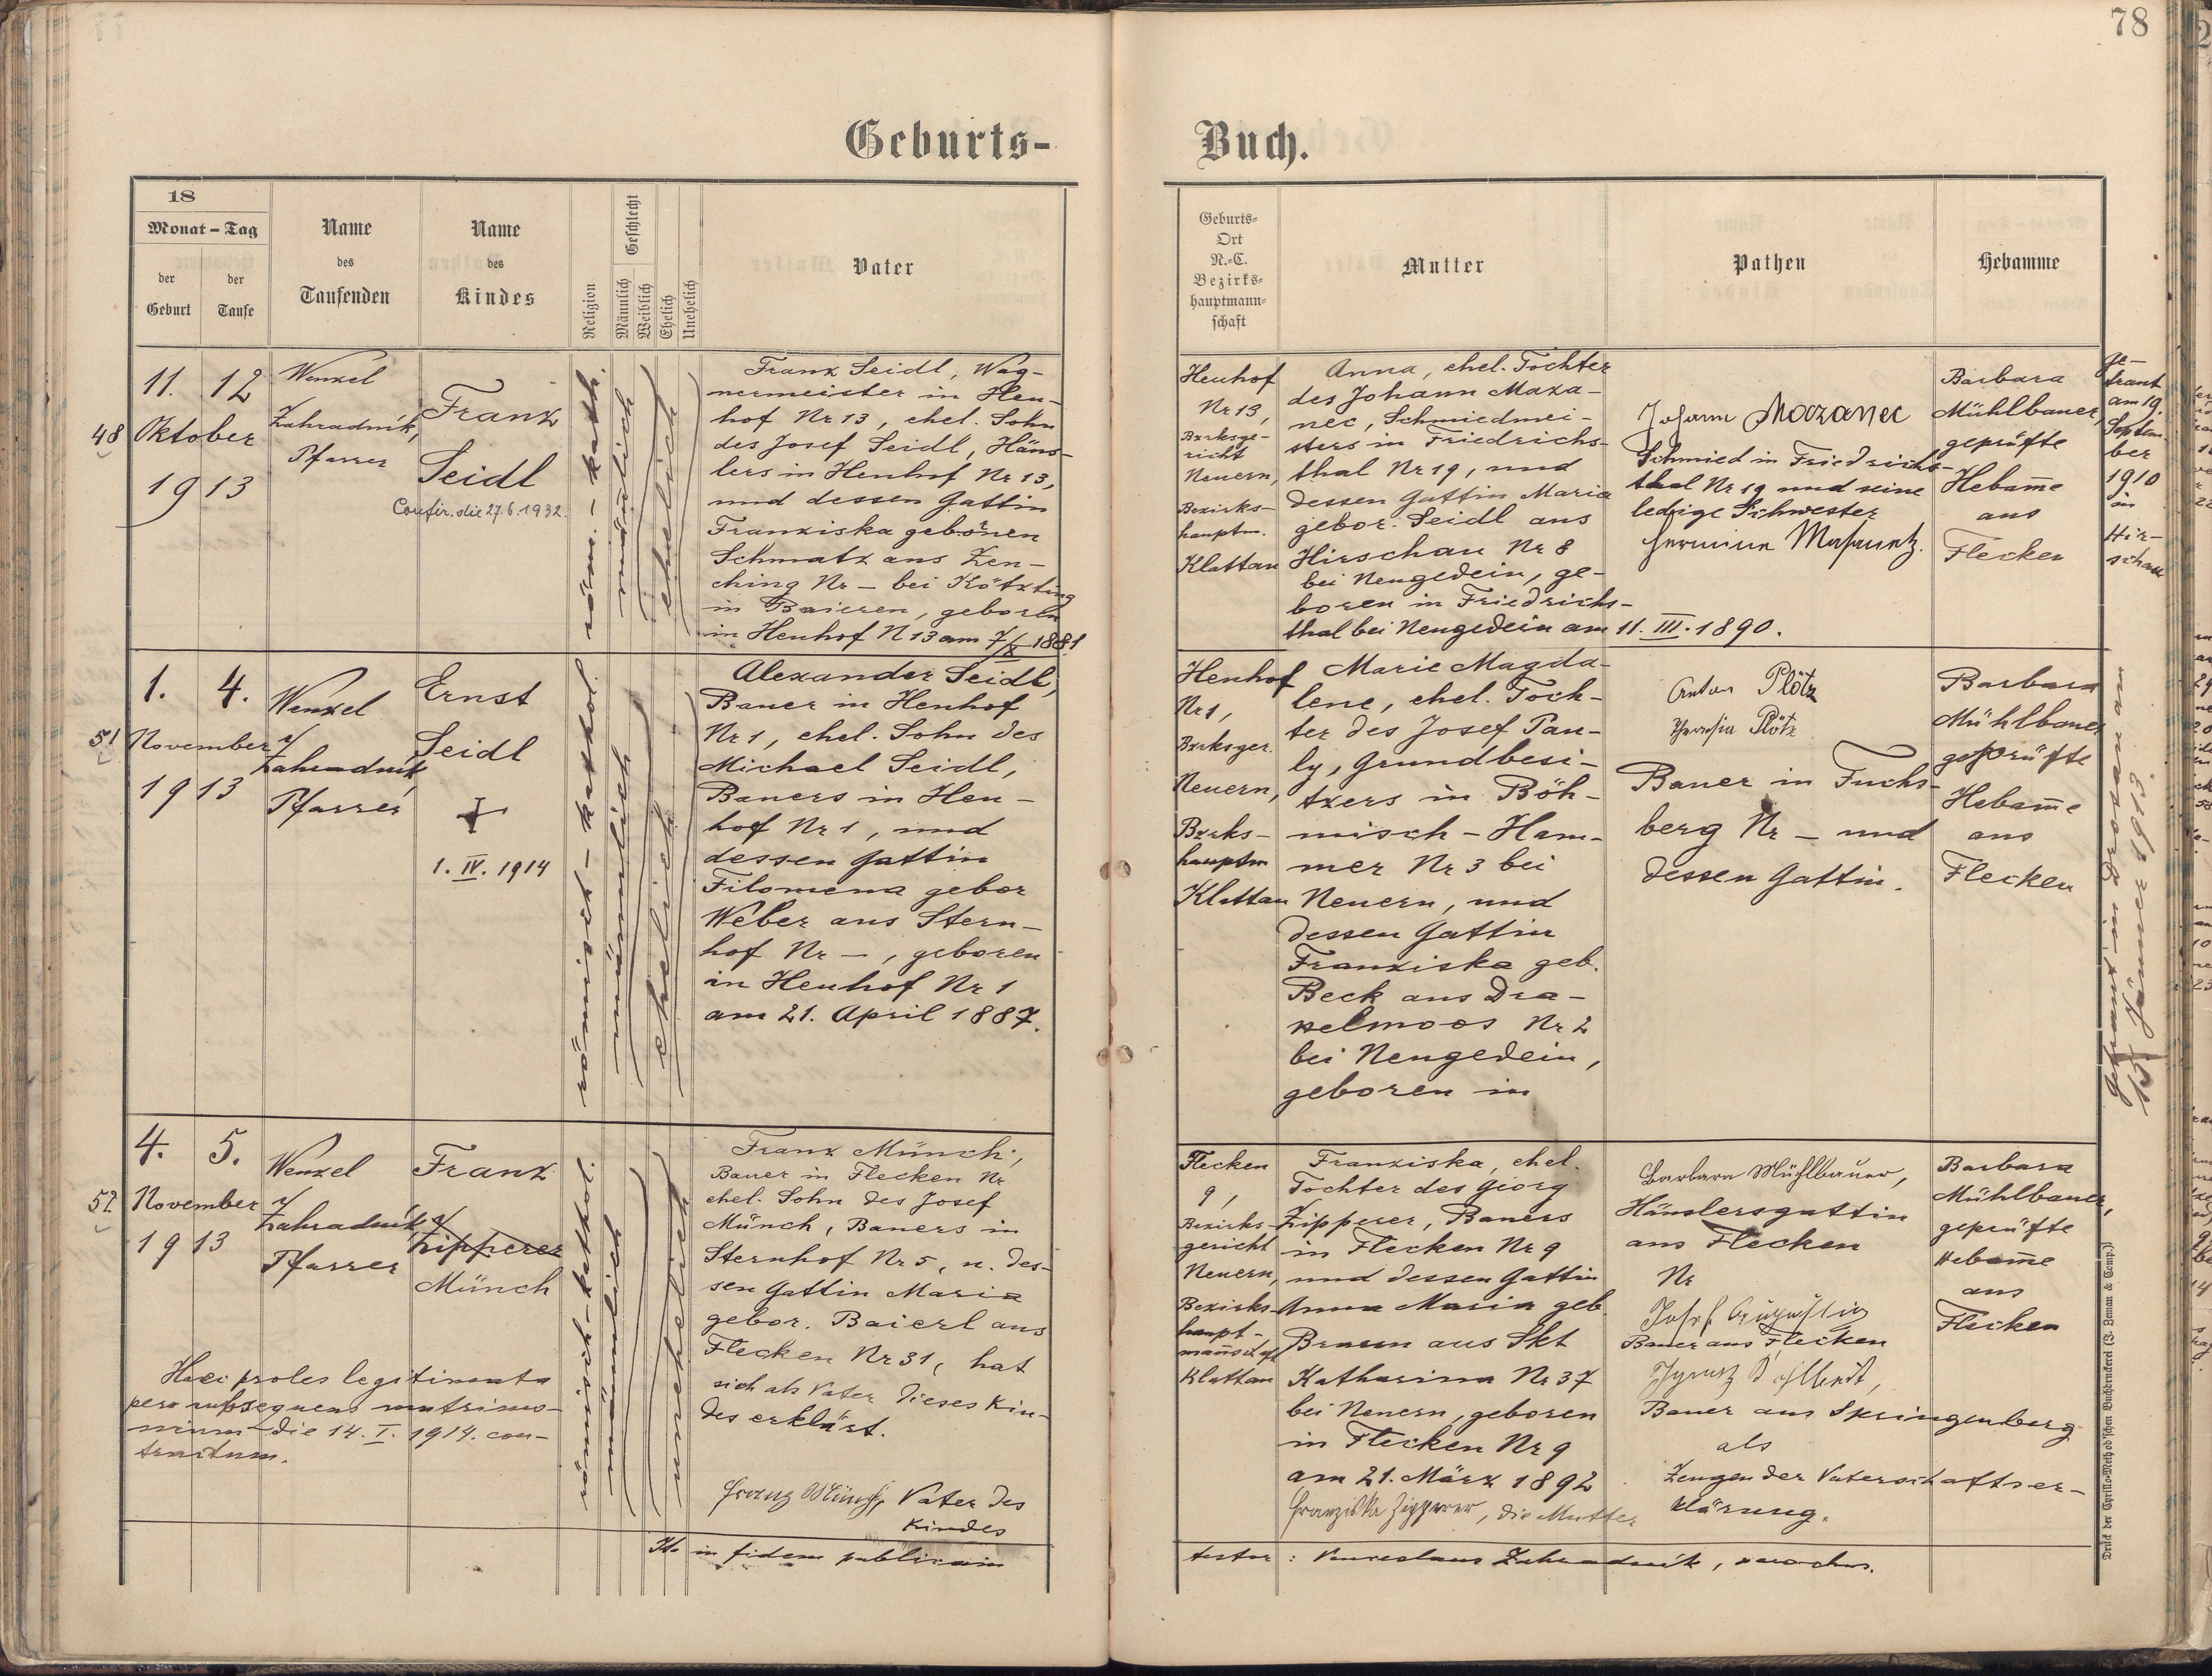 78
Geburts-
Buch.
18
Monat – Tag
der
Geburt
der
Taufe
Name
des
Taufenden
Name
des
Kindes
Religion
Geschlecht
Männlich
Weiblich
Ehelich
Unehelich
Vater
Geburts-
Ort
N.-C.
Bezirks-
hauptmann-
schaft
Mutter
Pathen
Hebamme
48
11. 12
Oktober
1913
Wenzel
Zahradník,
Pfarrer
Franz
Seidl
Confir. die 27.6.1932.
röm. - kath.
männlich
ehelich
Franz Seidl, Wag-
nermeister in Heu-
hof Nr 13, ehel. Sohn
des Josef Seidl, Häus-
lers in Heuhof Nr 13,
und dessen Gattin
Franziska geborenen
Schmatz aus Zen-
ching Nr – bei Kötzting
in Baieren, geboren
in Heuhof N 13 am 7/X 1881
Heuhof
Nr 13,
Bzrksge-
richt
Neuern,
Bezirks-
hauptm.
Klattau
Anna, ehel. Tochter
des Johann Maza-
nec, Schmiedmei-
sters in Friedrichs-
thal Nr 19, und
dessen Gattin Maria
gebor. Seidl aus
Hirschau Nr 8
bei Neugedein, ge-
boren in Friedrichs-
thal bei Neugedein am 11. III. 1890.
Johann Mazanec
Schmied in Friedrichs-
thal Nr 19 und seine
ledige Schwester
Hermine Masanetz.
Barbara
Mühlbauer,
geprüfte
Hebam̄e
aus
Flecken
ge-
traut
am 19.
Septem-
ber
1910
in
Hir-
schau
51
1. 4.
November
1913
Wenzel
Zahradník,
Pfarrer
Ernst
Seidl
1. IV. 1914
römisch - kathol.
männlich
ehelich
Alexander Seidl,
Bauer in Heuhof
Nr 1, ehel. Sohn des
Michael Seidl,
Bauers in Heu-
hof Nr 1, und
dessen Gattin
Filomena gebor
Weber aus Stern-
hof Nr –, geboren
in Heuhof Nr 1
am 21. April 1887.
Heuhof
Nr 1,
Bzrksger.
Neuern,
Bzrks-
hauptm
Klattau
Marie Magda-
lene, ehel. Toch-
ter des Josef Pau-
ly, Grundbesi-
tzers in Böh-
misch - Ham-
mer Nr 3 bei
Neuern, und
dessen Gattin
Franziska geb.
Beck aus Dra-
xelmoos Nr 2
bei Neugedein,
geboren in
Anton Plötz
Theresia Plötz
Bauer in Fuchs-
berg Nr – und
dessen Gattin.
Barbara
Mühlbauer
geprüfte
Hebam̄e
aus
Flecken
Getraut in Drosau am
15. Jänner 1913.
52
4. 5.
November
1913
Wenzel
Zahradník,
Pfarrer
Franz
Zipperer
Münch
römisch - kathol.
männlich
unehelich
Haec proles legitimata
per subsequens matrimo-
nium die 14. I. 1914. con-
tractum.
Franz Münch,
Bauer in Flecken Nr
ehel. Sohn des Josef
Münch, Bauers in
Sternhof Nr 5, u. des-
sen Gattin Maria
gebor. Baierl aus
Flecken Nr 31, hat
sich als Vater dieses Kin-
des erklärt.
Franz Münch, Vater des
Kindes
Flecken
9,
Bezirks-
gericht
Neuern,
Bezirks-
haupt-
man̄schaft
Klattau
Franziska, ehel.
Tochter des Georg
Zipperer, Bauers
in Flecken Nr 9
und dessen Gattin
Anna Maria geb.
Braun aus Skt
Katharina Nr 37
bei Neuern, geboren
in Flecken Nr 9
am 21. März 1892
Franziska Zipperer, die Mutter
Barbara Mühlbauer,
Häuslersgattin
aus Flecken
Nr
Josef
Bauer aus Flecken
Bauer aus Springenberg
als
Zeugen der Vaterschaftser-
klärung.
Barbara
Mühlbauer,
geprüfte
Hebam̄e
aus
Flecken
in fidem publicam
testor: Venceslaus Zahradník, parochus.
Druck der Cyrillo-Method'schen Buchdruckerei (J. Zeman & Comp.)